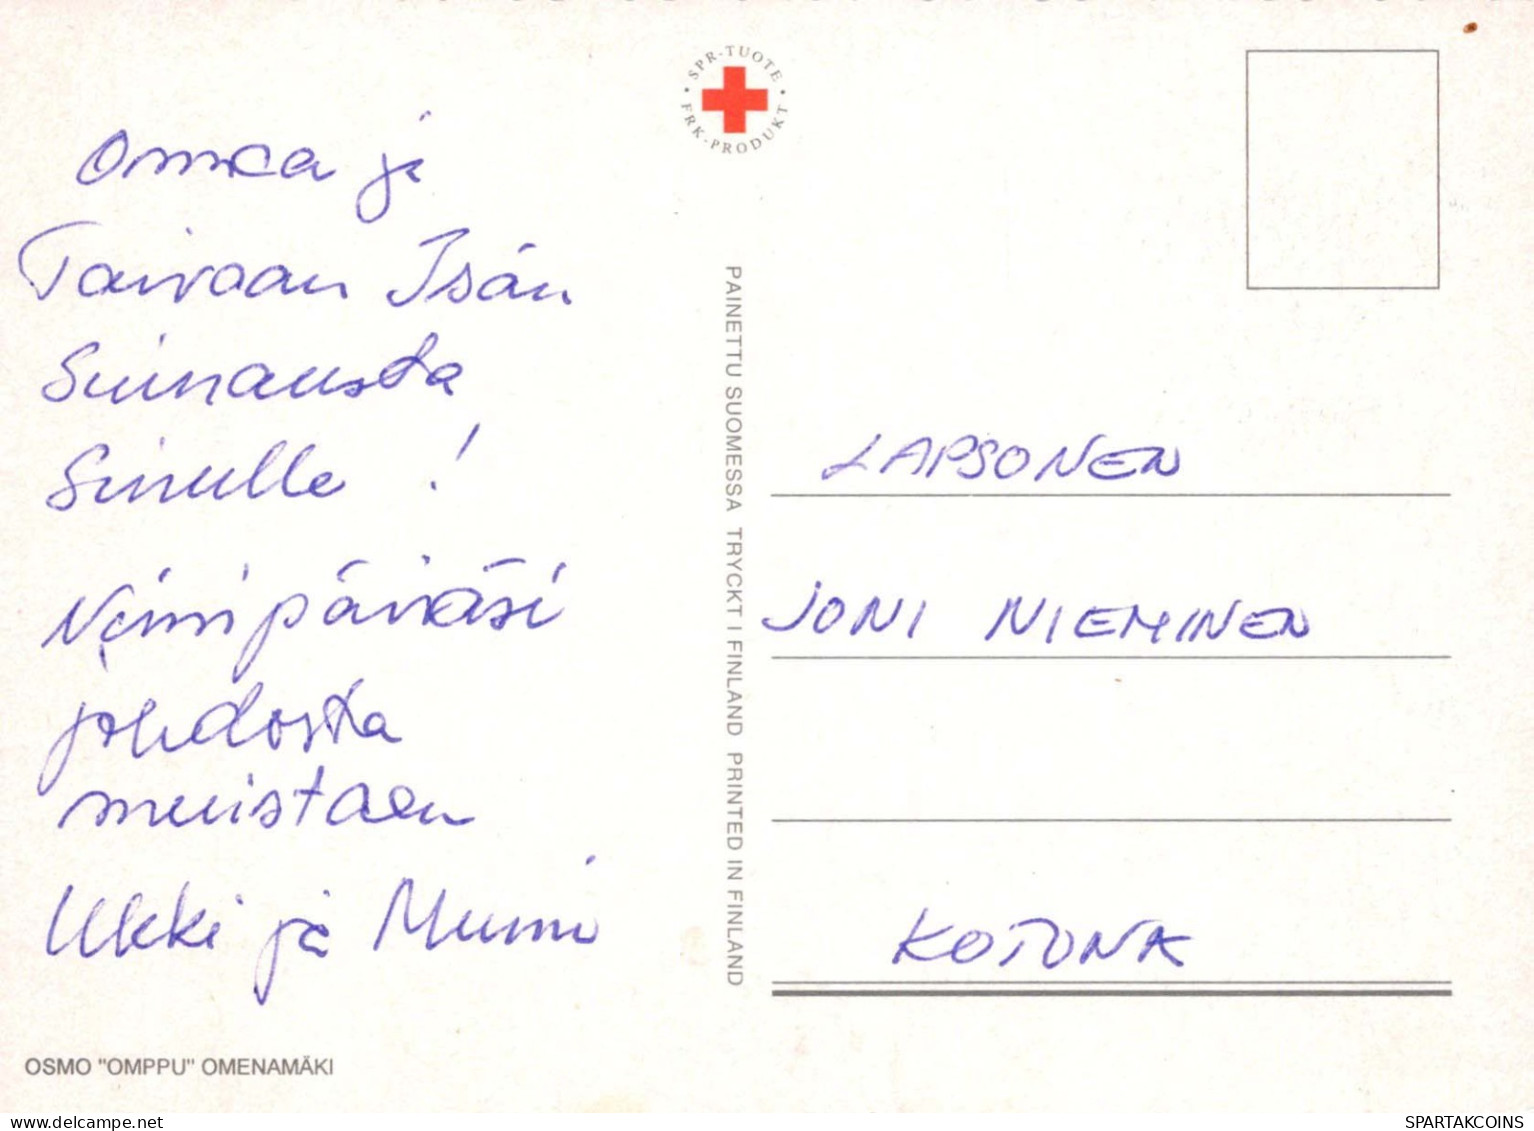 Onnea ja
Taivaan Isän
Siunausta
Sinulle !
Nimipäiväsi
johdosta
muistaen
Ukki ja Mummi
OSMO "OMPPU" OMENAMÄKI
• SPR-TUOTE •
FRK-PRODUKT
PAINETTU SUOMESSA TRYCKT I FINLAND PRINTED IN FINLAND
LAPSONEN
JONI NIEMINEN
KOTONA
www.delcampe.net
SPARTAKCOINS